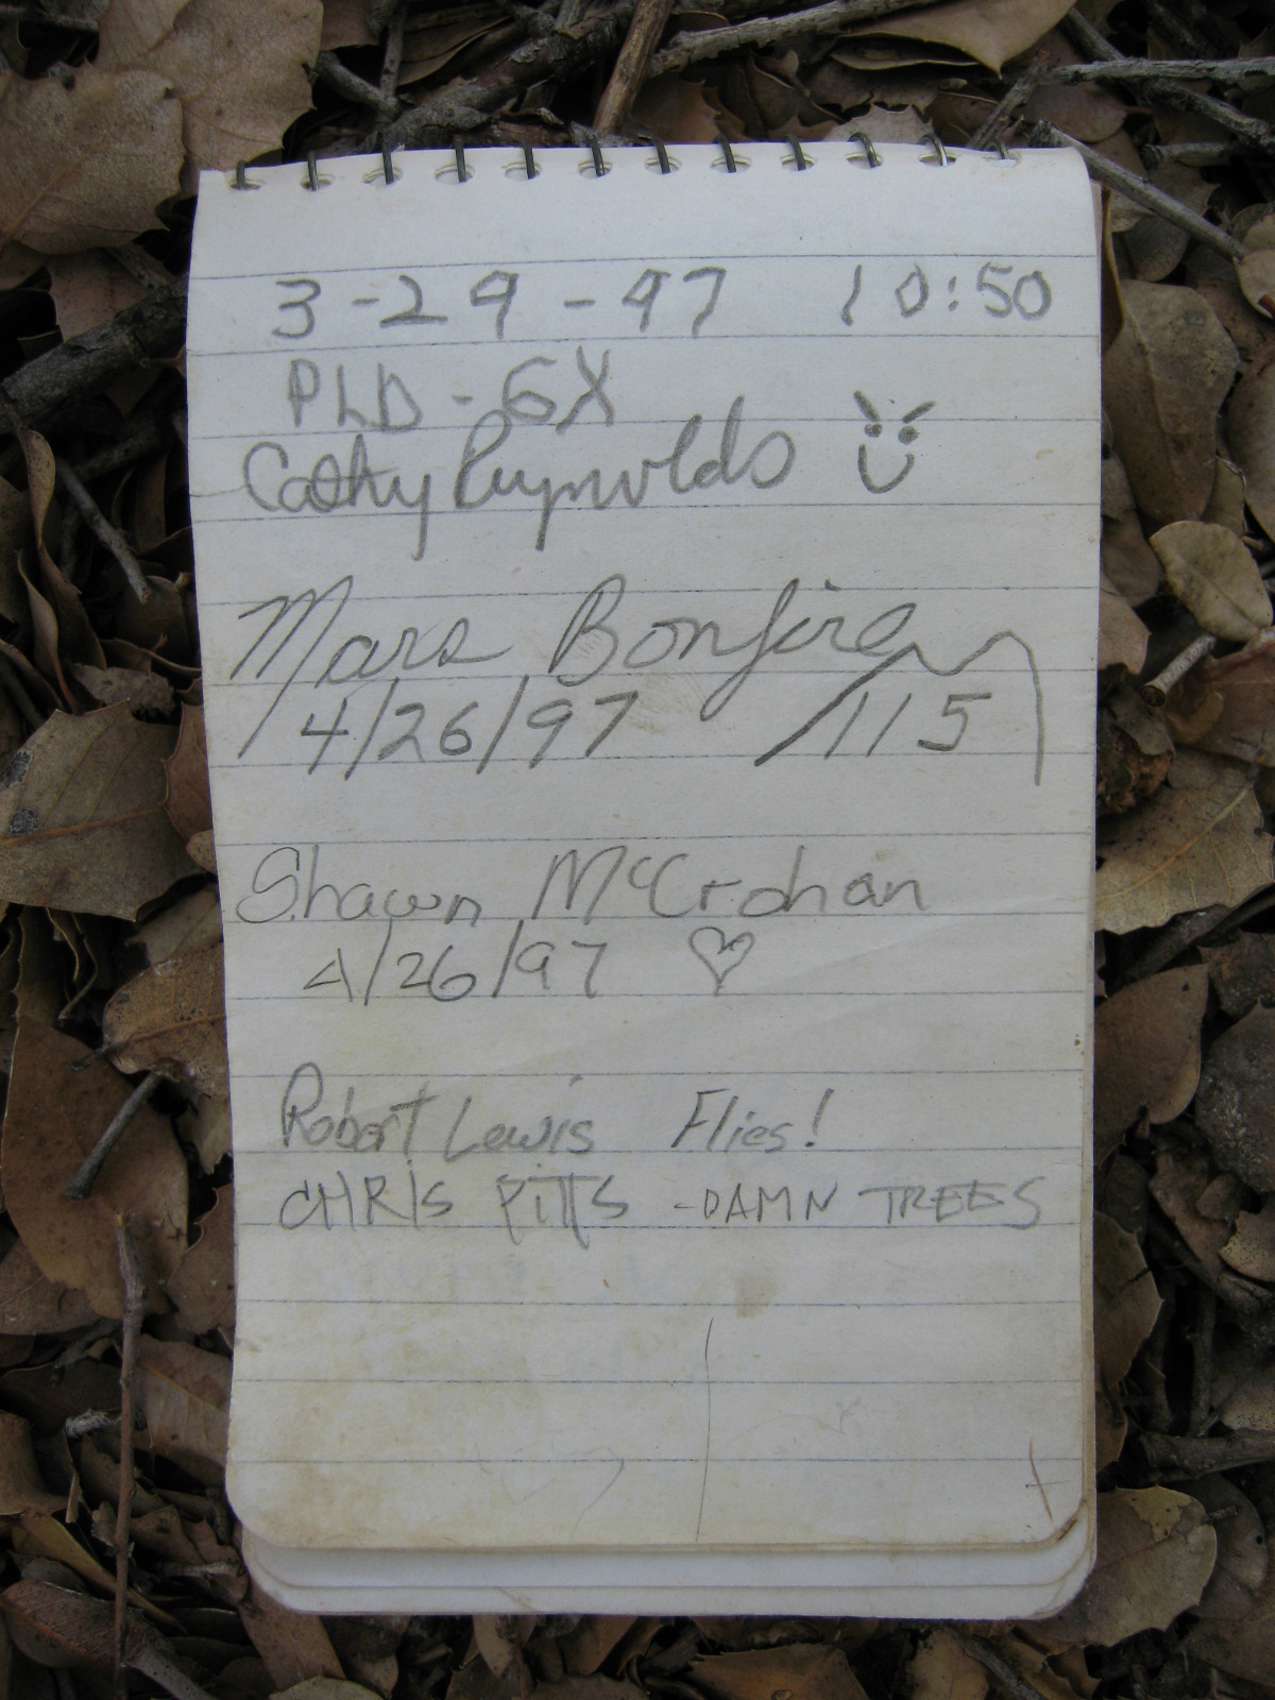 3-29-97 10:50
PLD-6X
Cathy Reynolds
Mars Bonfire
4/26/97 /115
Shawn McCrohan
4/26/97
Robert Lewis Flies!
CHRIS PITTS - DAMN TREES